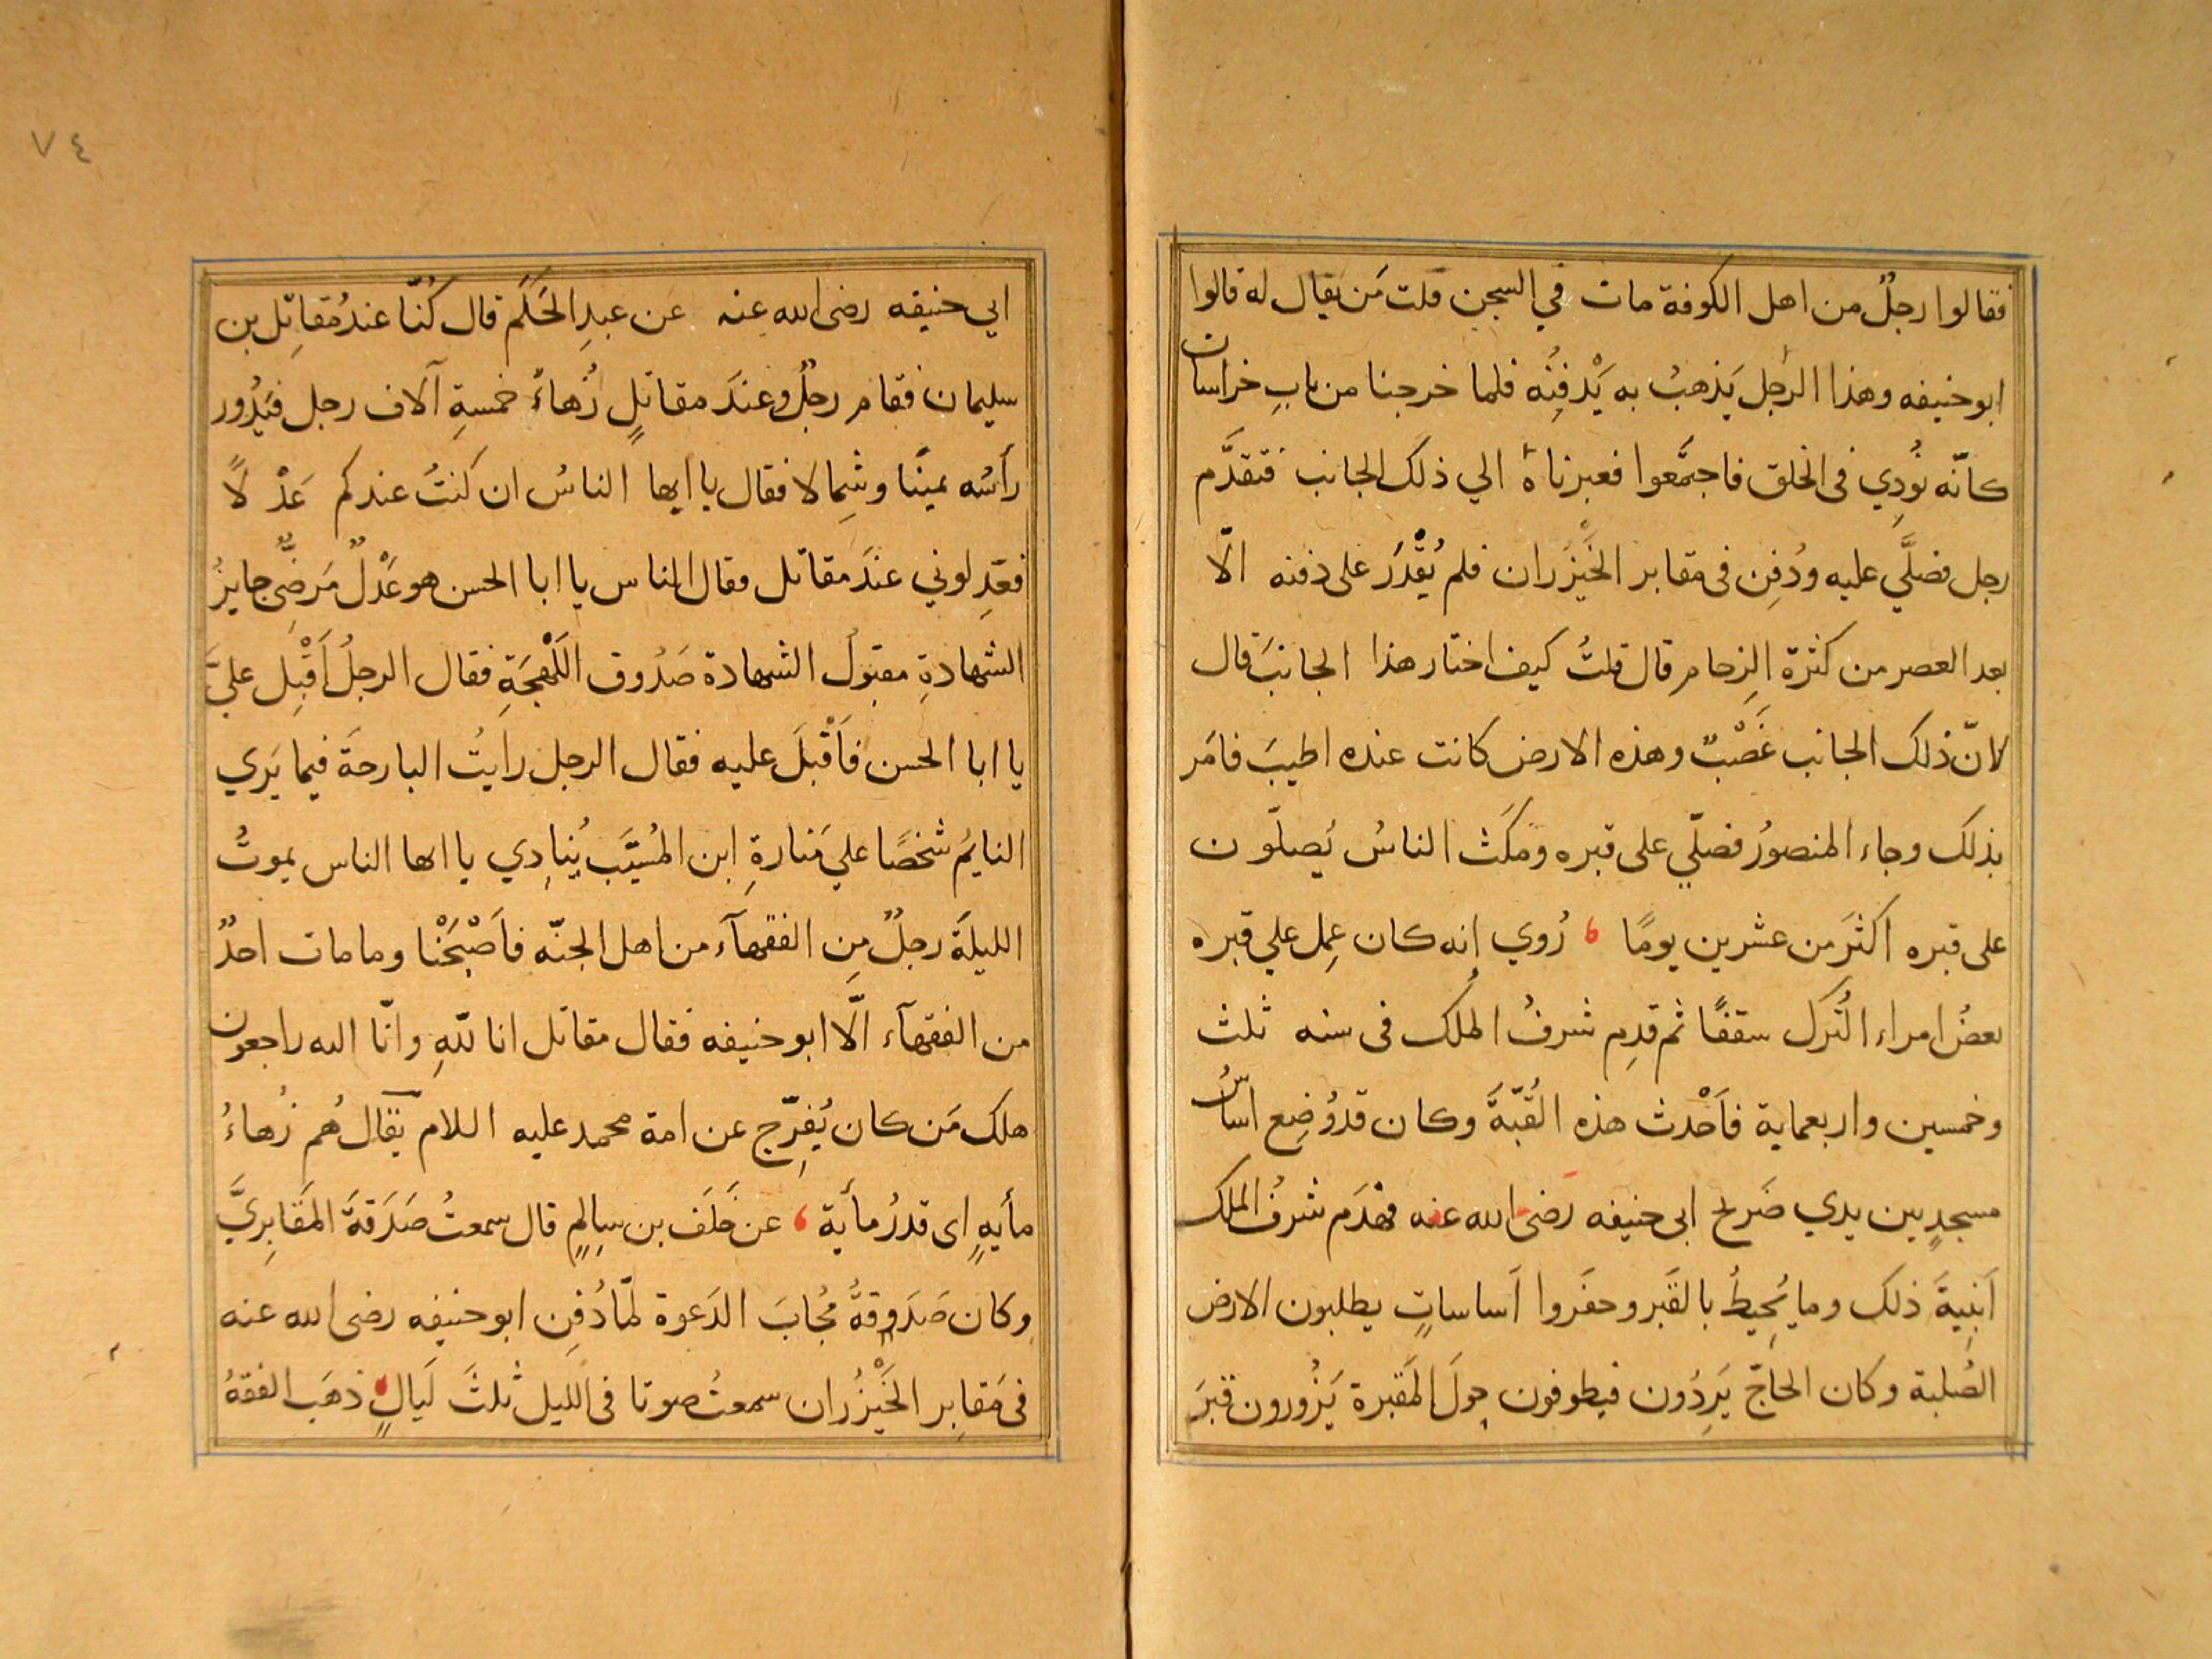 فقالوا رجلٌ من اهل الكوفة مات في السجن قلت مَن يقال له قالوا
ابو حنيفه وهذا الرجل يَذهبُ به يَدْفِنُه فلما خرجنا من بابِ خراسان
كانّه نُودِي فى الخلق فاجتمَّعوا فعبرناهُ الي ذلك الجانب فتقدَّم
رجل فصلَّي عليه ودُفِن فى مقابر الخَيْزُران فلم يُقْدَرَ على دفنه الّا
بعد العصر من كثرة الزحام قال قلتُ كيف اختار هذا الجانبَ قال
لانّ ذلك الجانب غَصْبٌ وهذه الارض كانت عنده اطيبَ فامَر
بذلك وجاء المنصورُ فصلّي على قبره ومكَث الناسُ يُصلّون
على قبره اكثَرَ من عشرين يومًا ، رُوي انه كان عِمل علي قبره
بعضُ امراء التُرك سقفًا ثم قدِم شرفُ المُلك فى سنه ثلث
وخمسين واربعماية فاَحْدث هذه القُبّةَ وكان قد وُضِع اساسُ
مسجدٍ بين يدي ضَرِيح ابى حنيفه رَضى الله عنه فهَدَم شرفُ الملك
اَبنِيةَ ذلك وما يُحِيطُ بالقَبر وحفَروا اَساساتٍ يطلبون الارض
الصُلبة وكان الحاجّ يَرِدُون فيطوفون حِولَ المَقبرة يَزُورون قبرَ
ابي حنيفه رضى الله عنه عَن عبدِ الحَكَم قال كُنّا عندَ مُقاتِل بن
سليمان فقام رجلٌ وعندَ مقاتلٍ زُهاءُ خمسةِ آلاف رجل فيَدُور
رأسُه يمينًا وشِمالا فقال يا ايها الناسُ ان كنتُ عندكم عَدْلًا
فعَدِلوني عندَ مقاتل فقال الناس يا ابا الحسن هو عَدْلٌ مَرضِىٌّ جايزُ
الشهادةِ مقبولُ الشهادة صَدُوق اللَهْجَةِ فقال الرجلُ اَقْبِل عليَّ
يا ابا الحسن فاَقْبلَ عليه فقال الرجل رايتُ البارحَةَ فيما يَري
النايمُ شخصًا علي مَنارةِ ابن المُسَيَّب يُنادِي يا ايها الناس يموتُ
الليلةَ رجلٌ مِن الفقهآء من اهل الجنّه فاَصْبَحْنا وما مات احدٌ
من الفقهآء الّا ابو حنيفه فقال مقاتل انا للّهِ وانّا اليه راجعون
هلك مَن كان يُفرِّج عن امة محمد عليه اللام يقال هُم زُهاءُ
مأيهٍ اى قدرُ مأية ، عن خَلَف بن سالِمٍ قال سمعتُ صَدَقةَ المَقابِريَّ
وكان صَدَوقةُ مُجابَ الدَعوة لمّا دُفِن ابو حنيفه رضى الله عنه
فى مَقابِر الخَيْزُران سمعتُ صوتا فى الليل ثلثَ لَيالٍ ذهَب الفقهُ
٧٤